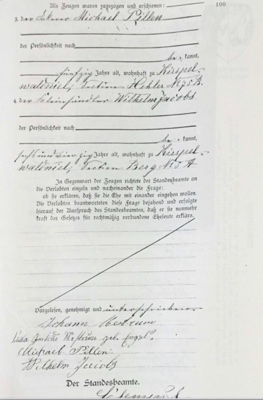 Als Zeugen waren zugezogen und erschienen: 100
3. der Ackerer Michael Pillen
der Persönlichkeit nach
be kannt,
fünfzig Jahre alt, wohnhaft zu Kirspel-
waldniel, Section Hehler №
4. der Wilhelm Jacobs
der Persönlichkeit nach
be kannt,
Jahre alt, wohnhaft zu Kirspel-
waldniel, Section Berg № 5 A.
In Gegenwart der Zeugen richtete der Standesbeamte an
die Verlobten einzeln und nacheinander die Frage:
ob sie erklären, daß sie die Ehe mit einander eingehen wollen.
Die Verlobten beantworteten diese Frage bejahend und erfolgte
hierauf der Ausspruch des Standesbeamten, daß er sie nunmehr
kraft des Gesetzes für rechtmäßig verbundene Eheleute erkläre.
Vorgelesen, genehmigt und unterschrieben
Johann
geb.
Michael Pillen
Wilhelm Jacobs
Der Standesbeamte.